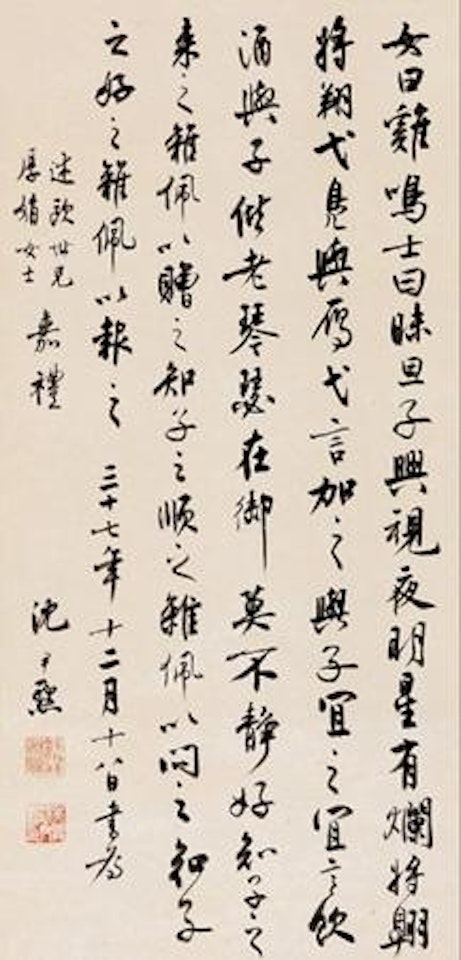 女曰雞鳴士曰昧旦子興視夜明星有爛將翱
將翔弋鳧與鴈弋言加之與子宜之宜言飲
酒與子偕老琴瑟在御莫不靜好知子之
來之雜佩以贈之知子之順之雜佩以問之知子
之好之雜佩以報之 三十七年十二月十八日書為
世兄
女士
嘉禮
沈尹默